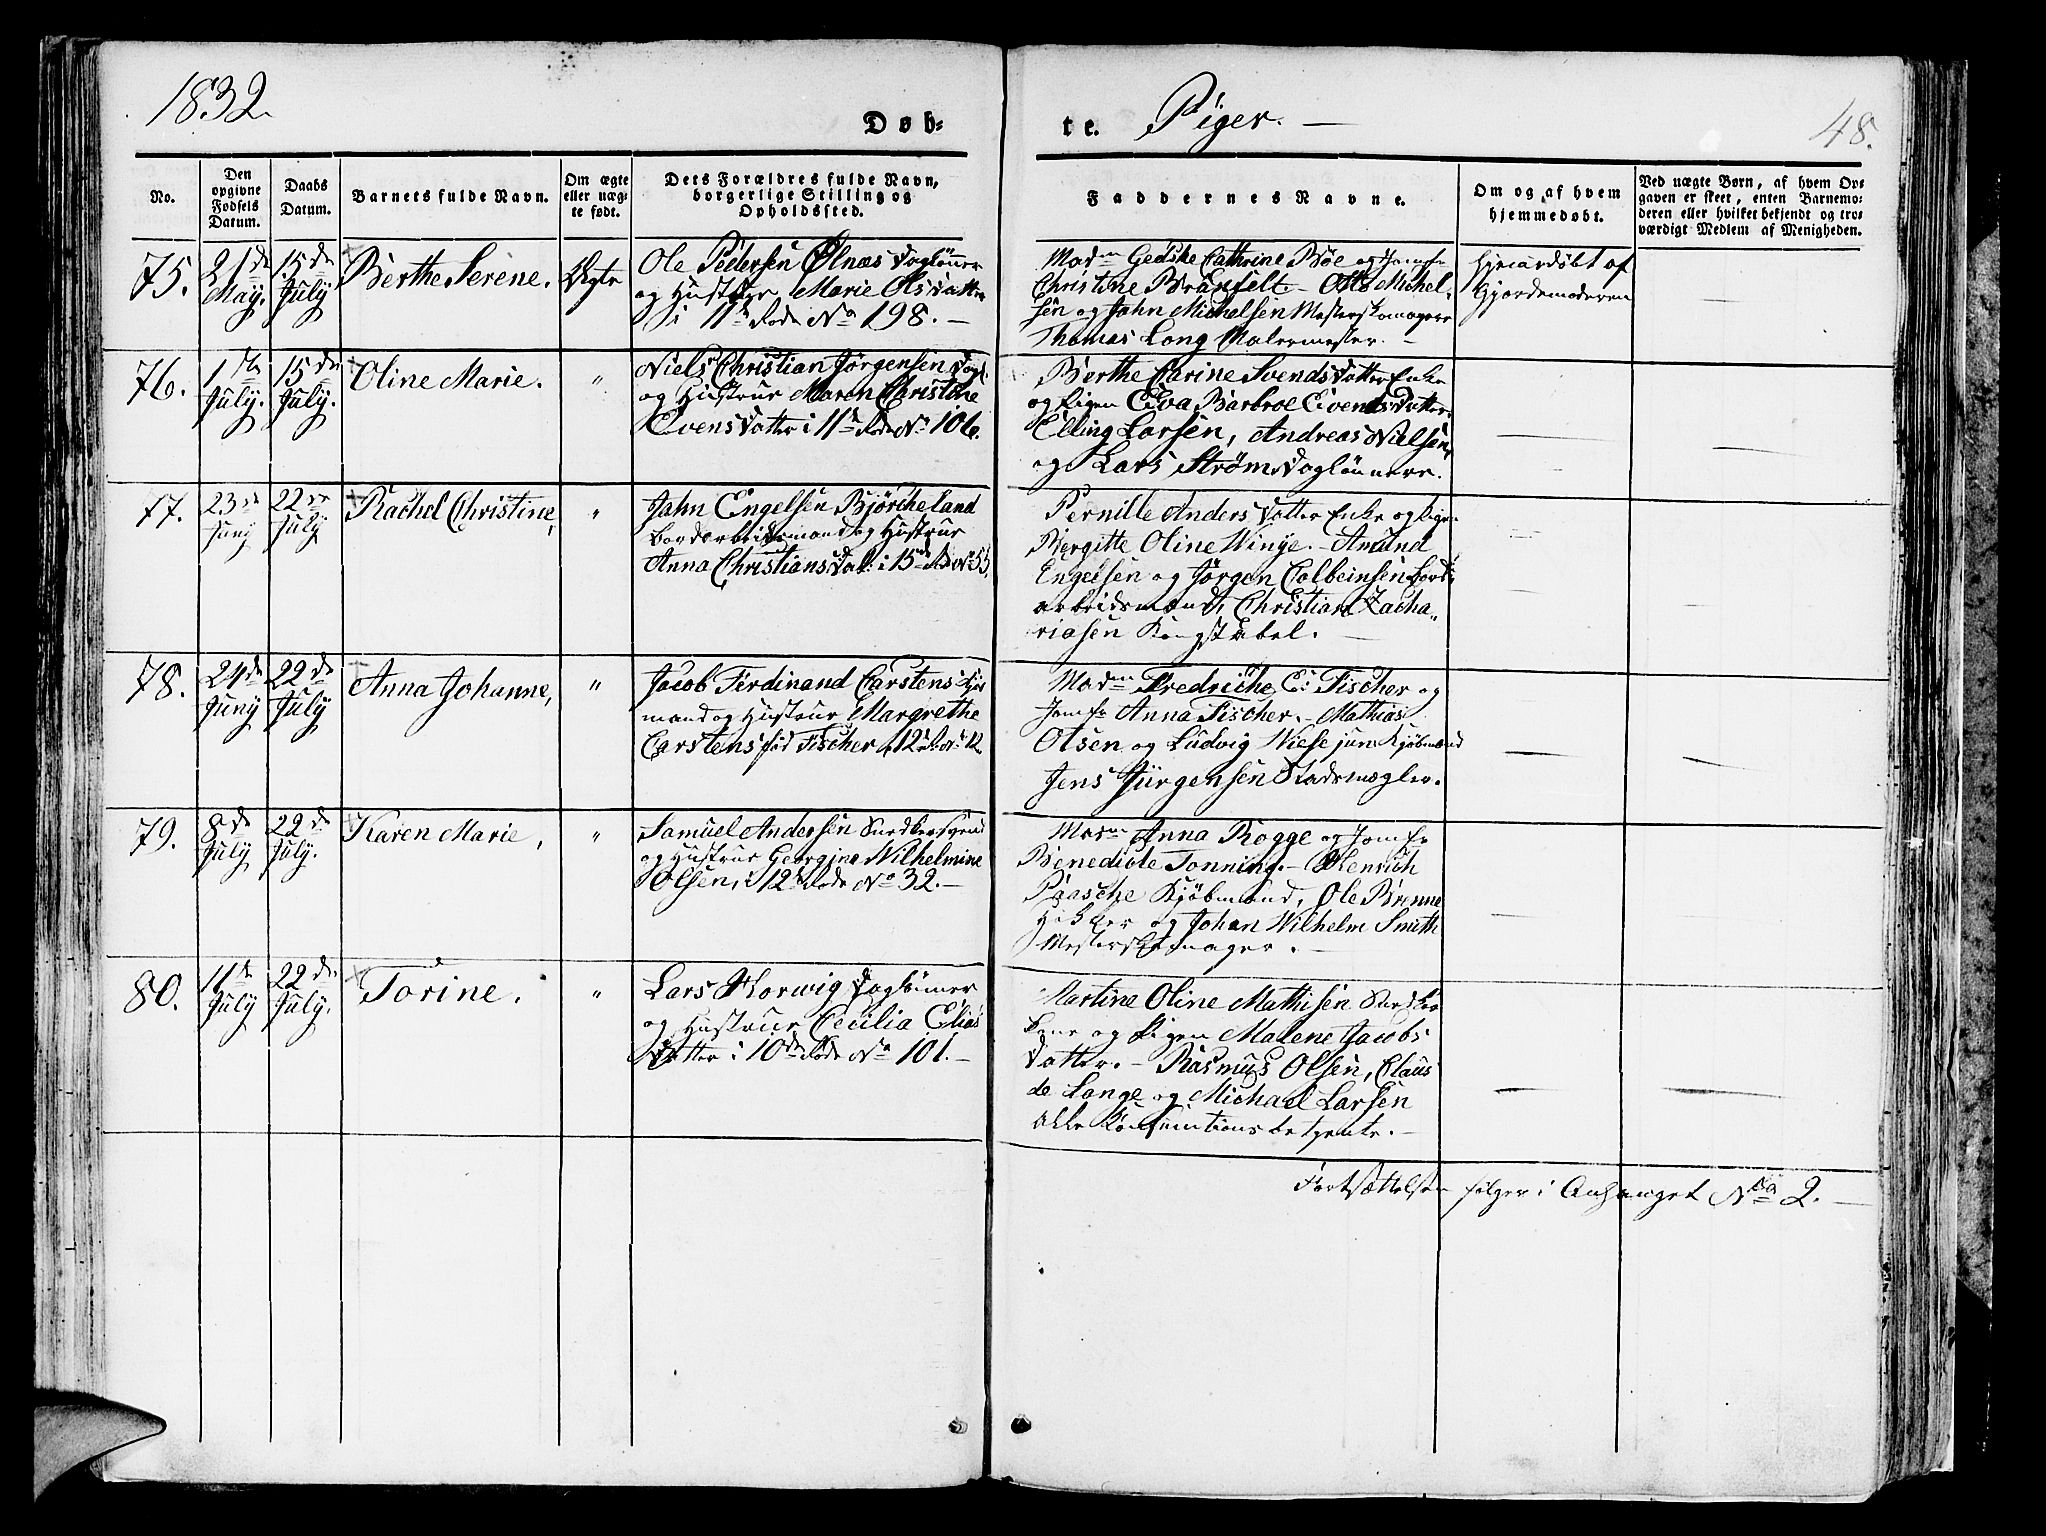 1832.
Døb-
te. Piger. —
48.
No.
Den opgivne Fødsels Datum.
Daabs Datum.
Barnets fulde Navn.
Om ægte eller uægte født.
Dets Forældres fulde Navn, borgerlige Stilling og Opholdssted.
Faddernes Navne.
Om og af hvem hjemmedøbt.
Ved uægte Børn, af hvem Opgaven er skeet, enten Barnemoderen eller hvilket bekjendt og troværdigt Medlem af Menigheden.
75.
21de May.
15de July
Berthe Serene.
Ægte
Ole Pedersen Ølnæs Daglønner
og Hustrue Marie Olsdatter
i 11te Rode No 198. —
Madm Gedske Cathrine Bøe og Jomfr
Christine Branfelt – Otto Michel-
sen og Jahn Michelsen Mesterskomagere
Thomas Long Malermester. –
Hjemmedøbt af
Gjordemoderen
76.
1ste July.
15de July.
Oline Marie.
"
Niels Christian Jørgensen Dagl.
og Hustrue Maren Christine
Evensdatter i 11te Rode No 106.
Berthe Carine Svendsdatter Enke
og Pigen Eva Barbroe Eivendsdatter.
Elling Larsen, Andreas Nielsen,
og Lars Strøm Daglønnere.
77.
23de Juny
22de July
Rachel Christine,
"
Jahn Engelsen Björcheland
Bordarbeidsmand og Hustrue
Anna Christiansdat: i 15de R. No 55.
Pernille Andersdatter Enke og Pigen
Bergitte Oline Winge. – Amund
Engelsen og Jørgen Colbeinsen Bord-
arbeidsmænd, Christian Zacha-
riasen Konstabel. —
78.
24de Juny
22de July
Anna Johanne,
"
Jacob Ferdinand Carstens Kjøb
mand og Hustrue Margrethe
Carstens fød Fischer, 12te R. No 12
Madm Fredriche C: Fischer og
Jomfr Anna Fischer. – Mathias
Olsen og Ludvig Wiese jun: Kjøbmænd
Jens Jürgensen Stadsmægler.
79.
8de July
22de July.
Karen Marie,
"
Samuel Andersen Snedkersvend
og Hustrue Georgine Wilhelmine
Olsen, i 12te Rode No 32. —
Madm Anna Rogge og Jomfr
Benedicte Tonning. – Henrich
Paasche Kjøbmand, Ole Brunne
og Johan Wilhelm Smith
Mesterskomager. —
80.
11de July
22de July.
Torine.
"
Lars Horwig Daglønner
og Hustrue Cecilia Elias
datter i 10de Rode No 101. —
Martine Oline Mathisen
og Pigen Malene Jacobs
datter. – Rasmus Olsen, Claus
de Lange og Michael Larsen
alle Konsumtionsbetjente. –
Fortsættelsen følger i Anhanget No 2. —